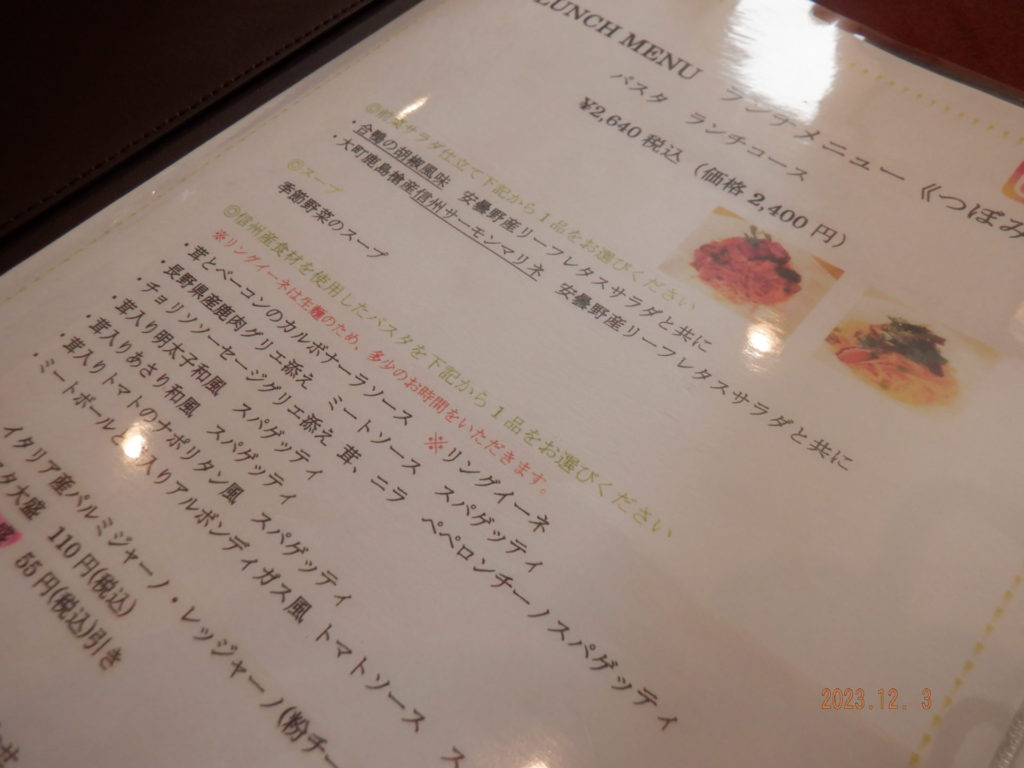 LUNCH MENU ランチメニュー 《つぼみ
パスタ ランチコース
¥2,640 税込 (価格 2,400 円)
サラダ仕立て下記から1品をお選びください
・合鴨の胡椒風味 安曇野産リーフレタスサラダと共に
・大町鹿島槍産信州サーモンマリネ 安曇野産リーフレタスサラダと共に
◎スープ
季節野菜のスープ
◎信州産食材を使用したパスタを下記から1品をお選びください
※リングイーネは生麺のため、多少のお時間をいただきます。
・茸とベーコンのカルボナーラソース ※リングイーネ
・長野県産鹿肉グリエ添え ミートソース スパゲッティ
・チョリソソーセージグリエ添え 茸、ニラ ペペロンチーノスパゲッティ
・茸入り明太子和風 スパゲッティ
・茸入りあさり和風 スパゲッティ
・茸入りトマトのナポリタン風 スパゲッティ
・ミートボールと 入りアルボンディガス風 トマトソース ス
イタリア産パルミジャーノ・レッジャーノ(粉チー
タ大盛 110 円(税込)
55 円(税込)引き
せ
2023.12. 3